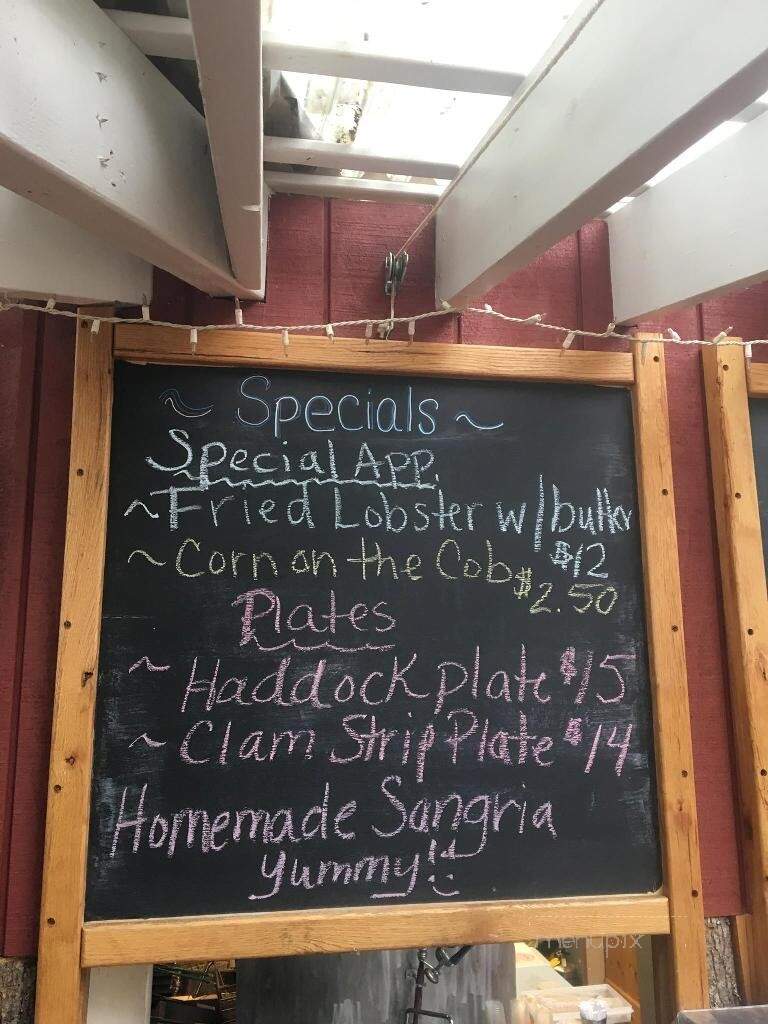 ~ Specials ~
Special App.
~ Fried Lobster w/butter
$12
~ Corn on the Cob $2.50
Plates
~ Haddock plate $15
~ Clam Strip Plate $14
Homemade Sangria
yummy!!
menupix